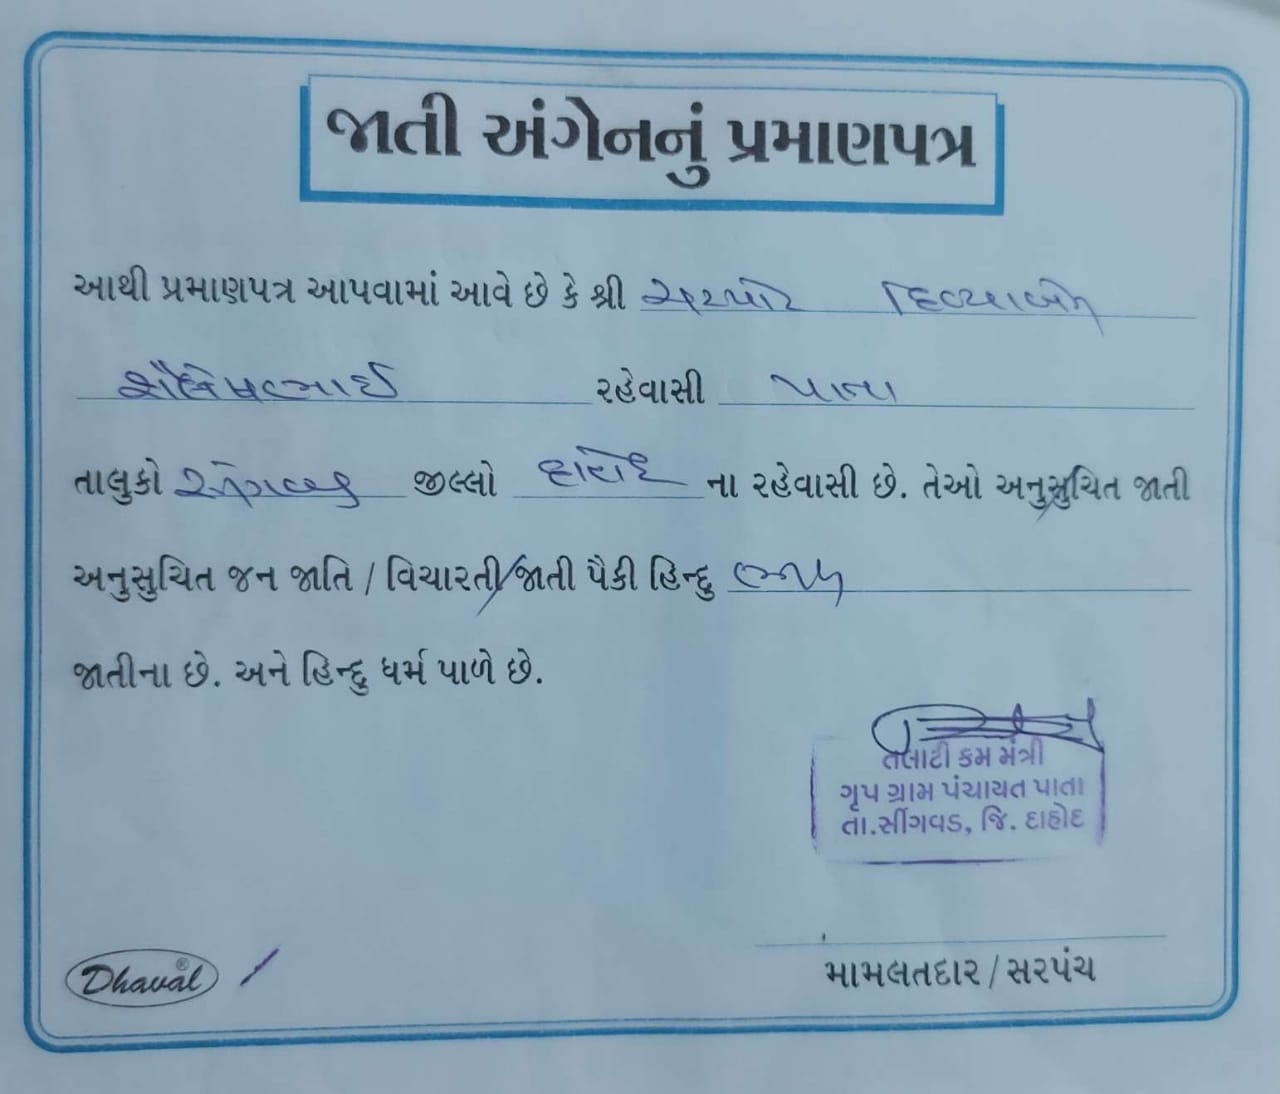 જાતી અંગેનનું પ્રમાણપત્ર
આથી પ્રમાણપત્ર આપવામાં આવે છે કે શ્રી દિવ્યાબેન
શૈલેષભાઈ રહેવાસી પાતા
તાલુકો સીંગવડ જીલ્લો દાહોદ ના રહેવાસી છે. તેઓ અનુસુચિત જાતી
અનુસુચિત જન જાતિ / વિચારતી/જાતી પૈકી હિન્દુ ભીલ
જાતીના છે. અને હિન્દુ ધર્મ પાળે છે.
તલાટી કમ મંત્રી
ગૃપ ગ્રામ પંચાયત પાતા
તા.સીંગવડ, જિ. દાહોદ
મામલતદાર / સરપંચ
Dhaval®